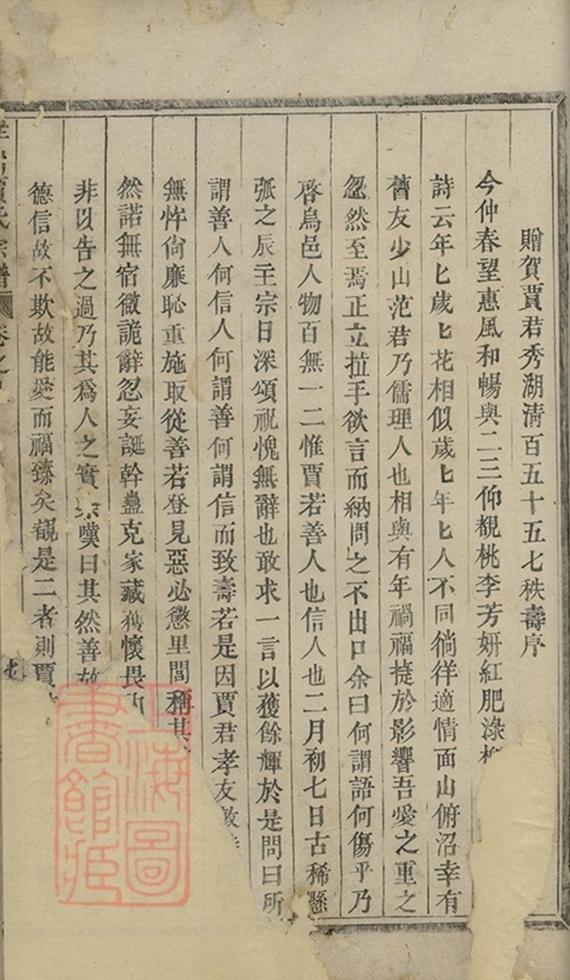 贈賀賈君秀湖清百五十五七秩壽序
今仲春望惠風和暢與二三仰觀桃李芳妍紅肥淥
詩云年匕歲匕花相似歲匕年匕人不同徜徉適情面山俯沼幸有
舊友少山范君乃儒理人也相與有年禍福㨗於影響吾愛之重之
忽然至焉正立拉手欲言而納問之不出口余曰何謂語何傷乎乃
啓烏邑人物百無一二惟賈君善人也信人也二月初七日古稀懸
弧之辰主宗日深頌祝愧無辭也敢求一言以獲餘輝於是問曰所
謂善人何信人何謂善何謂信而致壽若是因賈君孝友
無忤尙廉恥重施取從善若登見惡必懲里閭稱其
然諾無宿徵詭辭忍妄誕幹蠱克家藏懷畏
非以告之過乃其爲人之實 嘆曰其然善故
德信故不欺故能愛而福臻矣觀是二者則賈
氏宗譜 卷之
上海圖書館藏